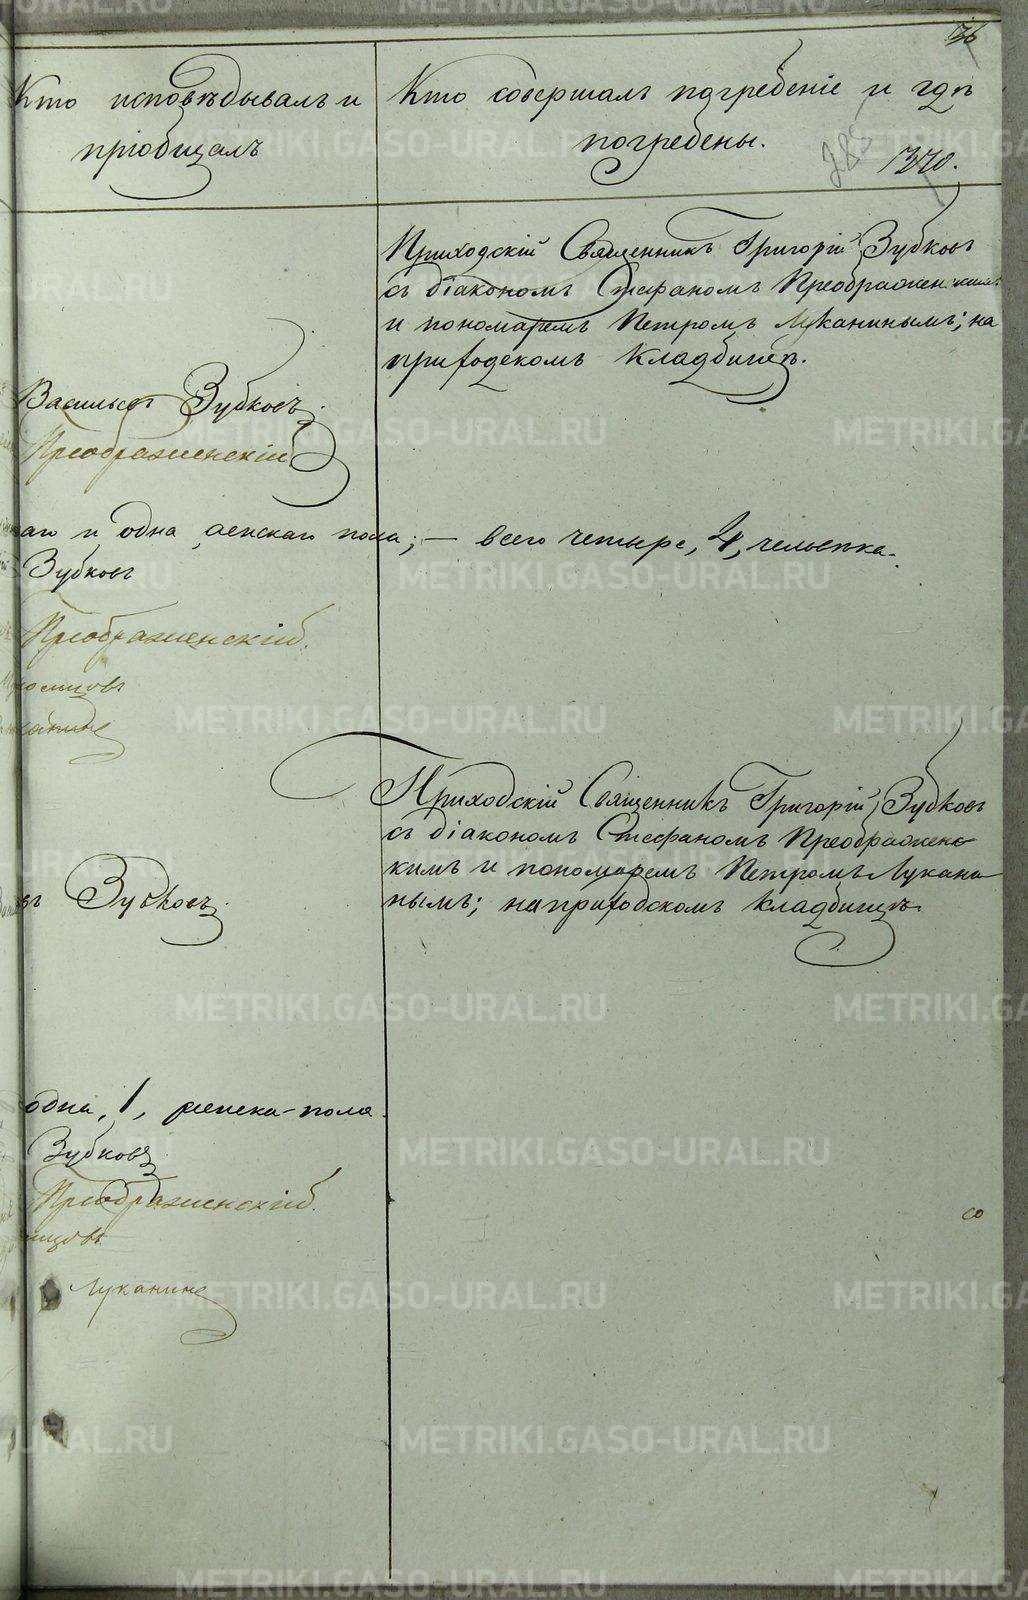 36
Кто исповѣдывалъ и
пріобщалъ
Кто совершалъ погребеніе и гдѣ
погребены.
285
370.
Приходскій Священникъ Григорій Зубковъ
съ діакономъ Стефаномъ Преображенскимъ
и пономаремъ Петромъ Луканинымъ; на
приходскомъ кладбищѣ.
Васильевъ Зубковъ
Преображенскій
аго и одна женскаго пола; — всего четыре, 4, человѣка.
Зубковъ
Преображенскій.
Приходскій Священникъ Григорій Зубковъ
съ діакономъ Стефаномъ Преображенс-
кимъ и пономаремъ Петромъ Лукани-
нымъ; на приходскомъ кладбищѣ.
въ Зубковъ.
одна, 1, женска пола.
Зубковъ
Преображенскій.
Луканинъ
METRIKI.GASO-URAL.RU